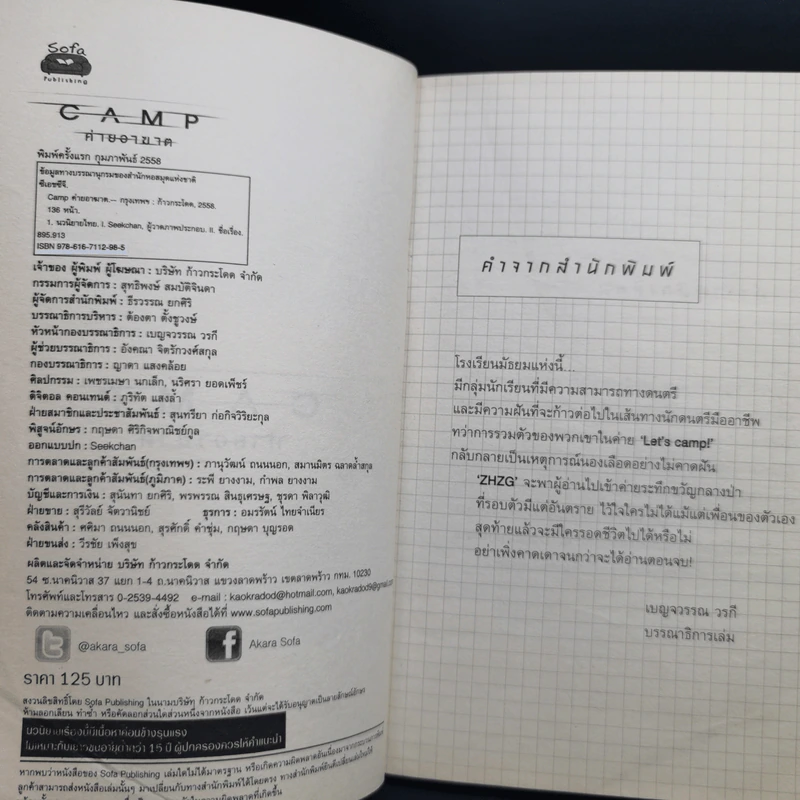 Sofa
Publishing
CAMP
ค่ายอาฆาต
พิมพ์ครั้งแรก กุมภาพันธ์ 2558
ข้อมูลทางบรรณานุกรมของสำนักหอสมุดแห่งชาติ
ซีเอชซีจี.
Camp ค่ายอาฆาต.-- กรุงเทพฯ : ก้าวกระโดด, 2558.
136 หน้า.
1. นวนิยายไทย. I. Seekchan, ผู้วาดภาพประกอบ. II. ชื่อเรื่อง.
895.913
ISBN 978-616-7112-98-5
เจ้าของ ผู้พิมพ์ ผู้โฆษณา : บริษัท ก้าวกระโดด จำกัด
กรรมการผู้จัดการ : สุทธิพงษ์ สมบัติจินดา
ผู้จัดการสำนักพิมพ์ : ธีรวรรณ ยกศิริ
บรรณาธิการบริหาร : ต้องตา ตั้งชูวงษ์
หัวหน้ากองบรรณาธิการ : เบญจวรรณ วรกี
ผู้ช่วยบรรณาธิการ : อังคณา จิตรักวงศ์สกุล
กองบรรณาธิการ : ญาดา แสงคล้อย
ศิลปกรรม : เพชรเมษา นกเล็ก, นริศรา ยอดเพ็ชร์
ดิจิตอล คอนเทนต์ : ภูริทัต แสงล้ำ
ฝ่ายสมาชิกและประชาสัมพันธ์ : สุนทรียา ก่อกิจวิริยะกุล
พิสูจน์อักษร : กฤษดา ศิริกิจพาณิชย์กูล
ออกแบบปก : Seekchan
การตลาดและลูกค้าสัมพันธ์(กรุงเทพฯ) : ภานุวัฒน์ ถนนนอก, สมานมิตร ฉลาดล้ำสกุล
การตลาดและลูกค้าสัมพันธ์(ภูมิภาค) : ระพี ยางงาม, กำพล ยางงาม
บัญชีและการเงิน : สุนันทา ยกศิริ, พรพรรณ สินธุเศรษฐ, ชุรดา พิลาวุฒิ
ฝ่ายขาย : สุรีวัลย์ จัตวานิชย์ ธุรการ : อมรรัตน์ ไทยจำเนียร
คลังสินค้า : คศิมา ถนนนอก, สุรศักดิ์ คำชุ่ม, กฤษดา บุญรอด
ฝ่ายขนส่ง : วีรชัย เพ็งสุข
ผลิตและจัดจำหน่าย บริษัท ก้าวกระโดด จำกัด
54 ซ.นาคนิวาส 37 แยก 1-4 ถ.นาคนิวาส แขวงลาดพร้าว เขตลาดพร้าว กทม. 10230
โทรศัพท์/โทรสาร 0-2539-4492 e-mail : kaokradod@hotmail.com, kaokradod9@gmail.com
ติดตามความเคลื่อนไหว และสั่งซื้อหนังสือได้ที่ www.sofapublishing.com
@akara_sofa
Akara Sofa
ราคา 125 บาท
สงวนลิขสิทธิ์โดย Sofa Publishing ในนามบริษัท ก้าวกระโดด จำกัด
ห้ามลอกเลียน ทำซ้ำ หรือคัดลอกส่วนใดส่วนหนึ่งจากหนังสือ เว้นแต่จะได้รับอนุญาตเป็นลายลักษณ์อักษร
นวนิยายเรื่องนี้มีเนื้อหาค่อนข้างรุนแรง
ไม่เหมาะกับเยาวชนอายุต่ำกว่า 15 ปี ผู้ปกครองควรให้คำแนะนำ
หากพบว่าหนังสือของ Sofa Publishing เล่มใดไม่ได้มาตรฐาน หรือเกิดความผิดพลาดอันเนื่องมาจาก
ลูกค้าสามารถส่งหนังสือเล่มนั้นๆ มาเปลี่ยนกับทางสำนักพิมพ์ได้โดยตรง ทางสำนักพิมพ์ยินดีเปลี่ยนเล่มใหม่ให้
คำจากสำนักพิมพ์
โรงเรียนมัธยมแห่งนี้...
มีกลุ่มนักเรียนที่มีความสามารถทางดนตรี
และมีความฝันที่จะก้าวต่อไปในเส้นทางนักดนตรีมืออาชีพ
ทว่าการรวมตัวของพวกเขาในค่าย ‘Let's camp!’
กลับกลายเป็นเหตุการณ์นองเลือดอย่างไม่คาดฝัน
‘ZHZG’ จะพาผู้อ่านไปเข้าค่ายระทึกขวัญกลางป่า
ที่รอบตัวมีแต่อันตราย ไว้ใจใครไม่ได้แม้แต่เพื่อนของตัวเอง
สุดท้ายแล้วจะมีใครรอดชีวิตไปได้หรือไม่
อย่าเพิ่งคาดเดาจนกว่าจะได้อ่านตอนจบ!
เบญจวรรณ วรกี
บรรณาธิการเล่ม